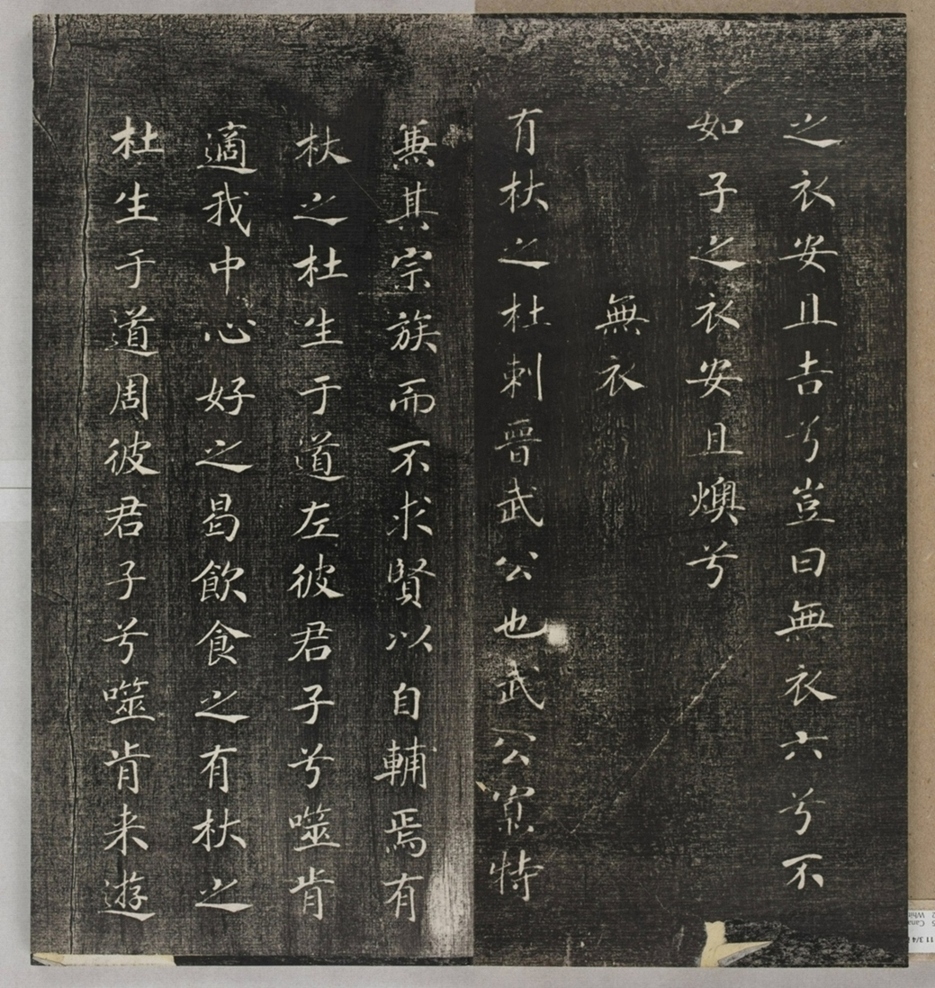 之衣安且吉兮豈曰無衣六兮不
如子之衣安且燠兮
無衣
有杕之杜刺晉武公也武公寡特
兼其宗族而不求賢以自輔焉有
杕之杜生于道左彼君子兮噬肯
適我中心好之曷飲食之有杕之
杜生于道周彼君子兮噬肯来遊